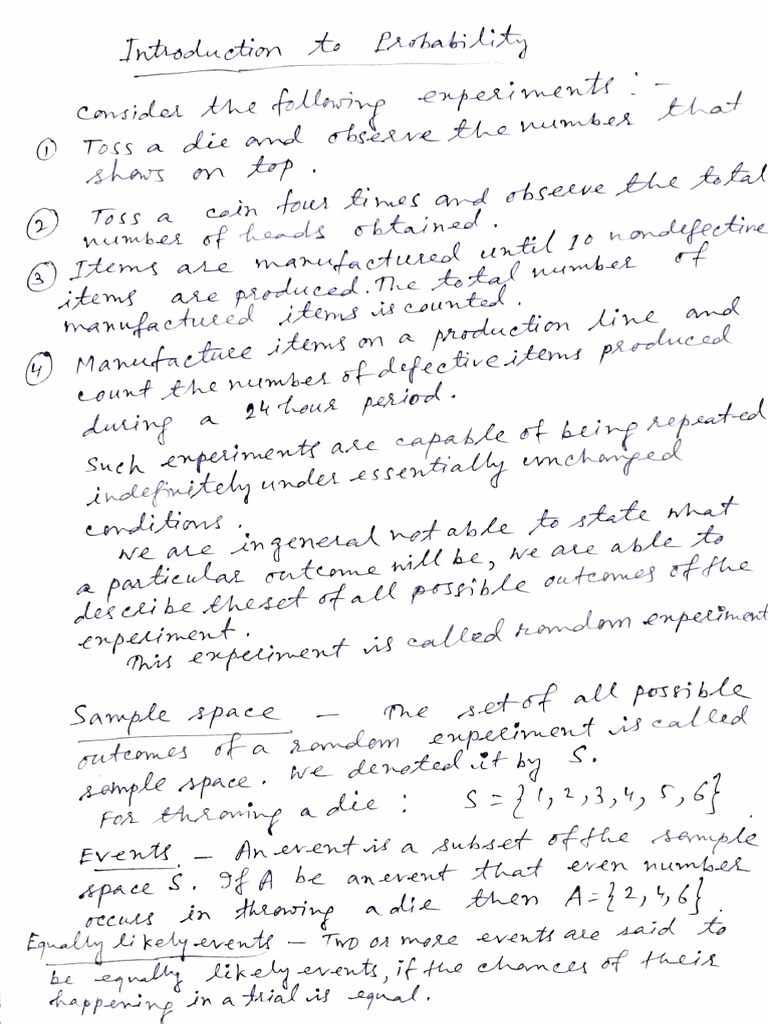 Introduction to Probability
Consider the following experiments : -
① Toss a die and observe the number that
shows on top.
② Toss a coin four times and observe the total
number of heads obtained.
③ Items are manufactured until 10 nondefective
items are produced. The total number of
manufactured items is counted.
④ Manufacture items on a production line and
count the number of defective items produced
during a 24 hour period.
Such experiments are capable of being repeated
indefinitely under essentially unchanged
conditions.
We are in general not able to state what
a particular outcome will be, we are able to
describe the set of all possible outcomes of the
experiment.
This experiment is called random experiment
Sample space — The set of all possible
outcomes of a random experiment is called
sample space. We denoted it by S.
For throwing a die : S = {1, 2, 3, 4, 5, 6}
Events — An event is a subset of the sample
space S. If A be an event that even number
occurs in throwing a die then A = {2, 4, 6}
Equally likely events — Two or more events are said to
be equally likely events, if the chances of their
happening in a trial is equal.